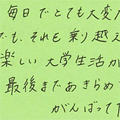 毎日でとても大変だ
でも、それを乗り越え
楽しい大学生活が
最後まであきらめ
がんばって